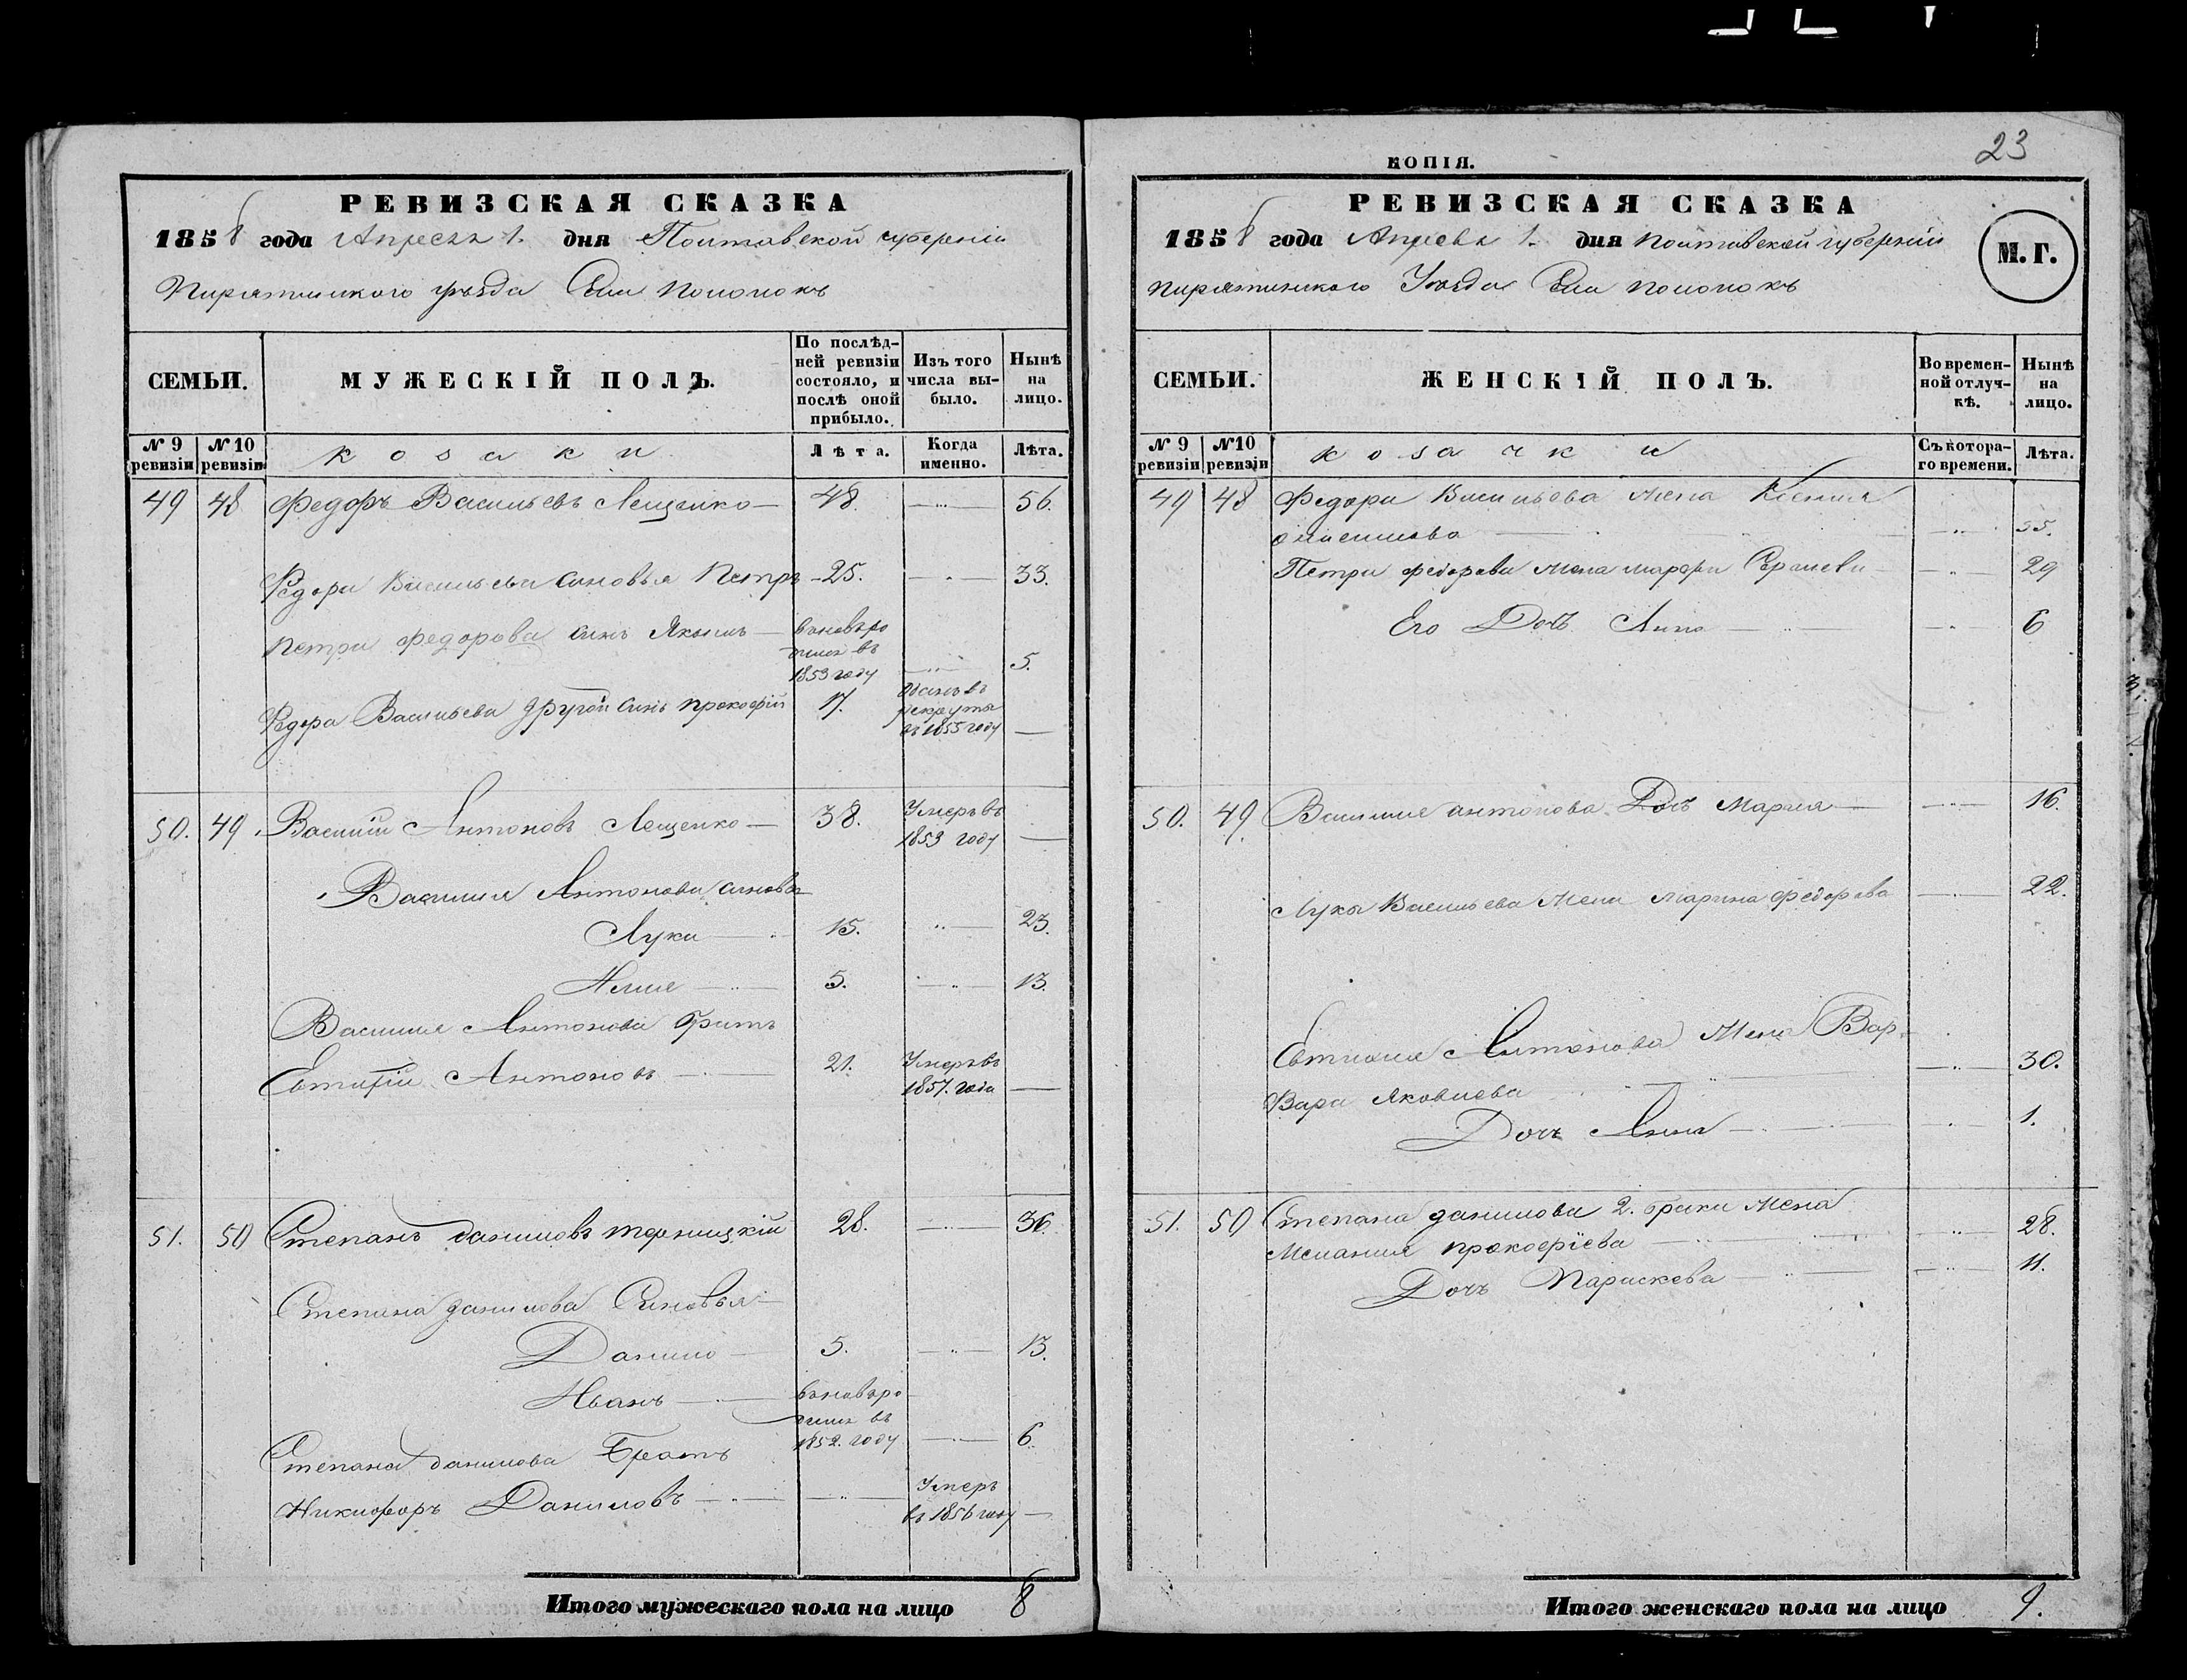 РЕВИЗСКАЯ СКАЗКА
1858 года Апреля 1. дня Полтавской губерніи
Пирятинского уѣзда Села
СЕМЬИ.
МУЖЕСКІЙ ПОЛЪ.
По послѣд-
ней ревизіи
состояло, и
послѣ оной
прибыло.
Изъ того
числа вы-
было.
Нынѣ
на
лицо.
№ 9
ревизіи
№ 10
ревизіи
козаки
Лѣта.
Когда
именно.
Лѣта.
49 48 Федоръ Васильевъ Лещенко 48. 56.
Федора Васильева синовья Петръ 25. 33.
Петра Федорова синъ Якимъ
вновьро
дился въ
1853 году 5.
Федора Васильева другой синъ прокофій 17.
Отданъ въ
рекруты
въ 1855 году
50. 49 Василій Антоновъ Лещенко 38.
Умеръ въ
1853 году
Василия Антонова синовья
Лука 15. 23.
Илия 5. 13.
Василия Антонова братъ
Евтихій Антоновъ 21.
Умеръ въ
1857. года
51. 50 Степанъ даниловъ 28. 36.
Степана данилова Синовья
Данило 5. 13.
Иванъ
вновьро
дился въ
1852. году 6.
Степана данилова Братъ
Никифоръ Даниловъ
Умеръ
въ 1856 году
Итого мужескаго пола на лицо 8
23
КОПІЯ.
РЕВИЗСКАЯ СКАЗКА
1858 года Апреля 1. дня полтавской губерніи
М. Г.
пирятинского Уѣзда Села
СЕМЬИ.
ЖЕНСКІЙ ПОЛЪ.
Во времен-
ной отлуч-
кѣ.
Нынѣ
на
лицо.
№ 9
ревизіи
№ 10
ревизіи
козачки
Съ котора-
го времени.
Лѣта.
49 48 Федора Васильева жена Ксения
55.
Петра федорова жена марфа 29
Его Дочъ Анна 6
50. 49 Василия антонова Дочъ Мария 16.
Луки Васильева Жена Марина федорова 22.
Евтихия Антонова Жена Вар
Вара Яковлева 30.
Дочъ Анна 1.
51. 50 Степана данилова 2. брака Жена
Мелания прокофіева 28.
Дочъ Параскева 11.
Итого женскаго пола на лицо 9.